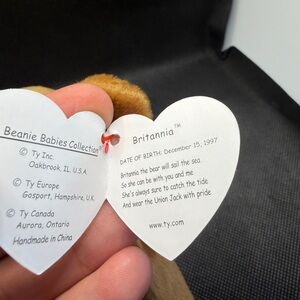 Beanie Babies Collection
© Ty Inc.
Oakbrook, IL. U.S.A
© Ty Europe
Gosport, Hampshire, U.K.
© Ty Canada
Aurora, Ontario
Handmade in China
Britannia™
DATE OF BIRTH: December 15, 1997
Britannia the bear will sail the sea
So she can be with you and me
She's always sure to catch the tide
And wear the Union Jack with pride
www.ty.com